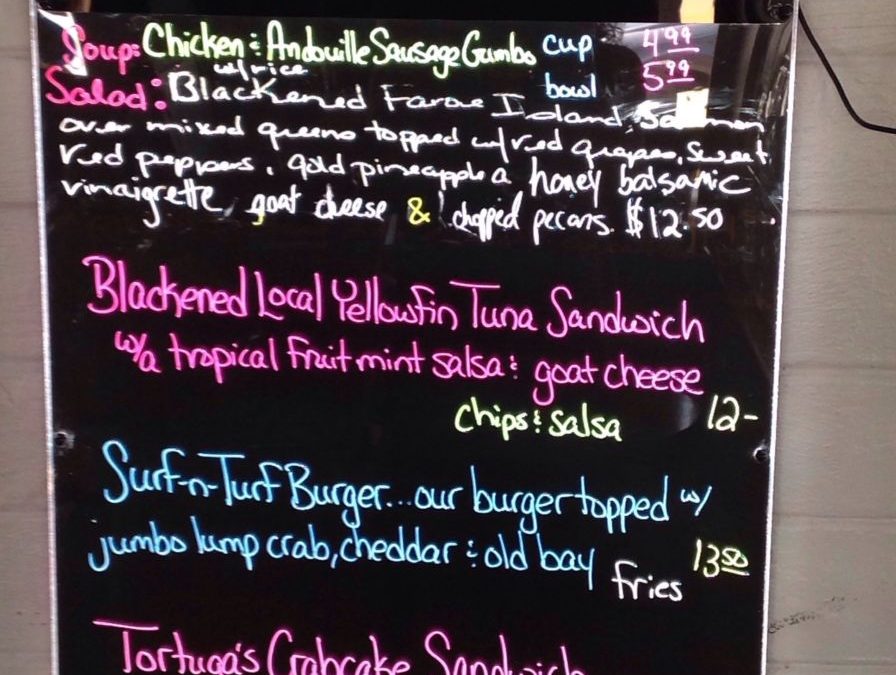 Soup: Chicken & Andouille Sausage Gumbo cup 4.99
w/rice bowl 5.99
Salad: Blackened Faroe Island Salmon
over mixed greens topped w/red grapes, sweet
red peppers, gold pineapple a honey balsamic
vinaigrette, goat cheese & chopped pecans. $12.50
Blackened Local Yellowfin Tuna Sandwich
w/a tropical fruit mint salsa & goat cheese
chips & salsa 12-
Surf-n-Turf Burger...our burger topped w/
jumbo lump crab, cheddar & old bay
fries 13.50
Tortuga's Crabcake Sandwich